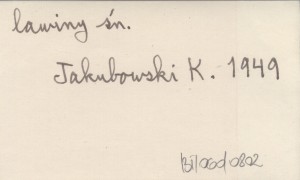 lawiny śn.
Jakubowski K. 1949
BI/060/0802